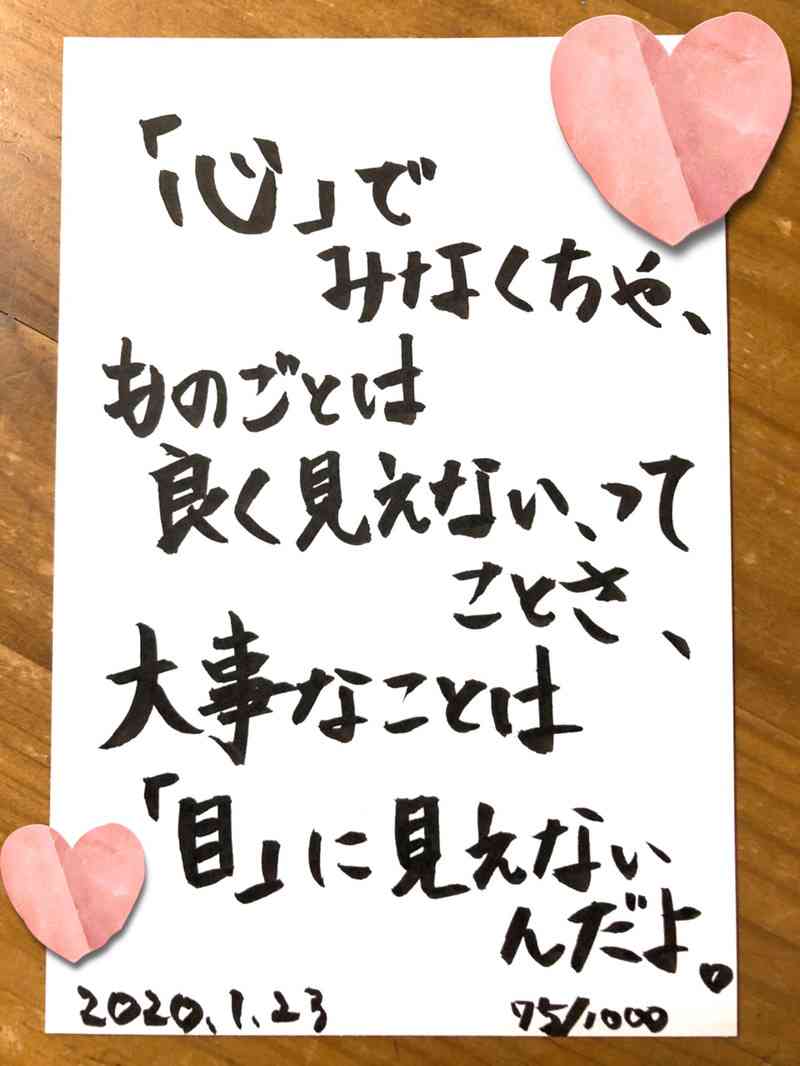 「心」で
みなくちゃ、
ものごとは
良く見えない、って
ことさ、
大事なことは
「目」に見えない
んだよ。
2020.1.23
75/1000